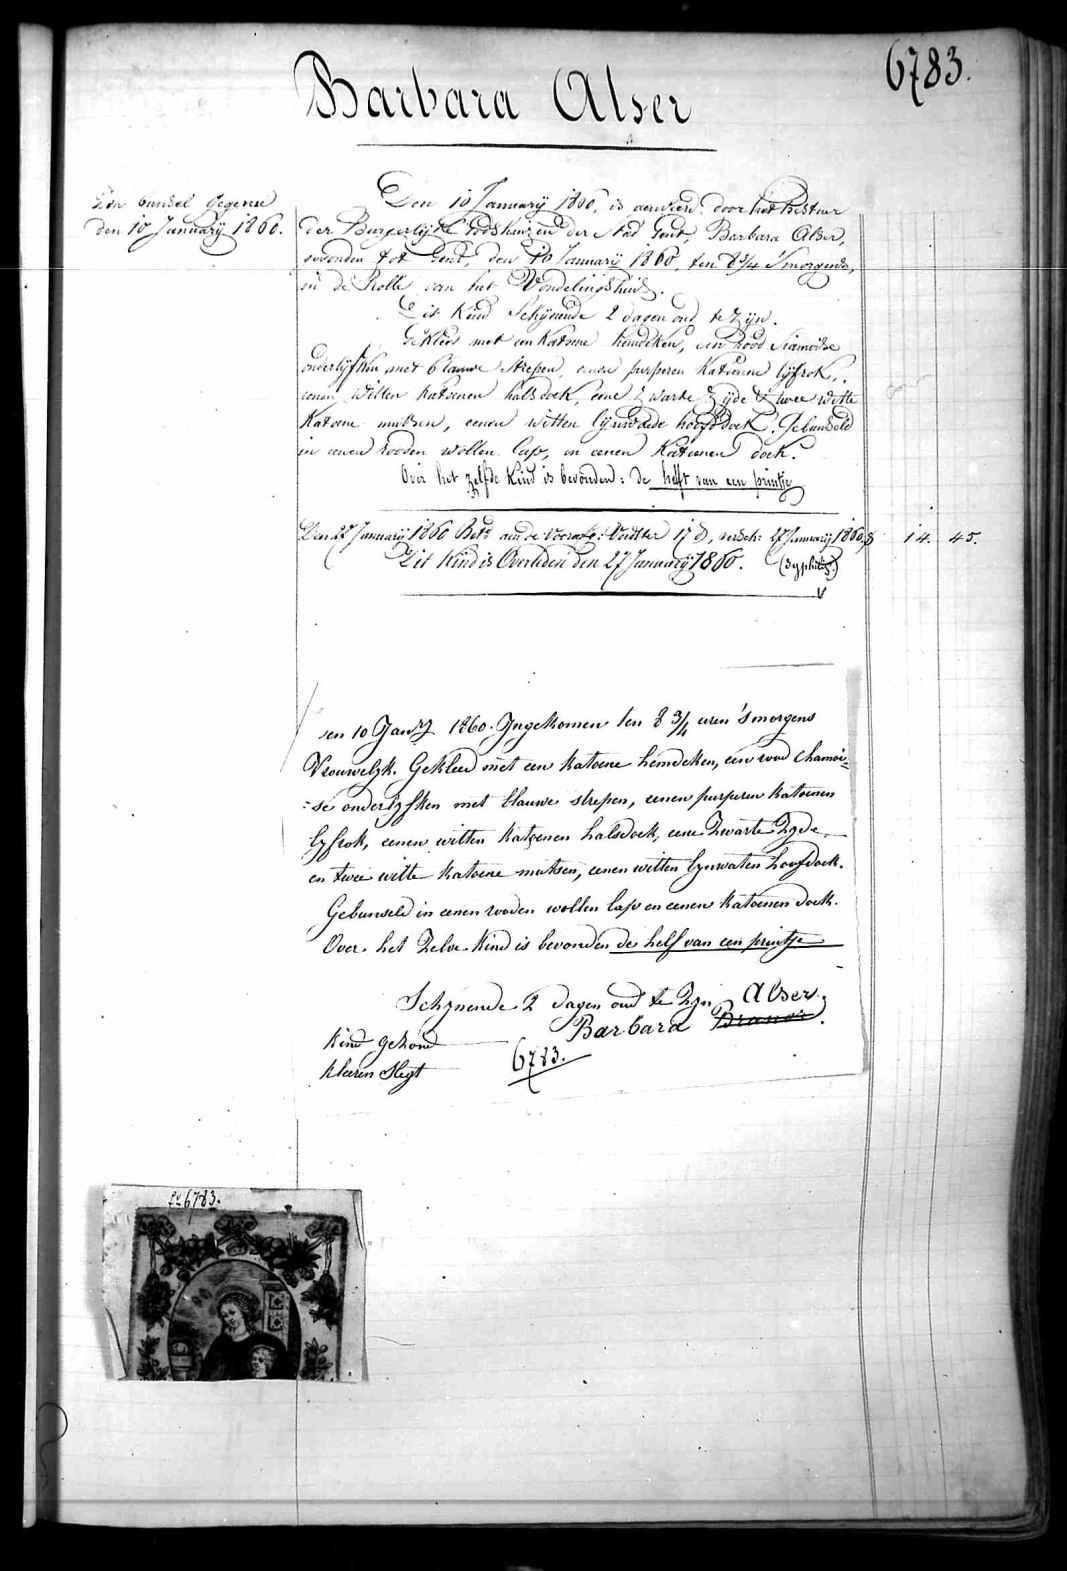 6783.
Barbara Alser
Een bunsel gegeven
den 10 January 1860.
Den 10 January 1860, is aenveerd door het Bestuer
der Burgerlijke Godshuizen der Stad Gent, Barbara Alser,
gevonden tot Gent, den 10 January 1860, ten 8 3/4 'smorgends,
in de Rolle van het Vondelingshuis.
Dit Kind Schijnende 2 dagen oud te zijn.
Gekleed met een Katoene hemdeken, een rood Siamoise
onderlijfken met blauwe strepen, eenen purperen Katoenen lijfrok,
eenen witten Katoenen halsdoek, eene zwarte zijde & twee witte
Katoene mutsen, eenen witten lijnwaden hoofddoek. Gebunseld
in eenen rooden wollen lap, en eenen Katoenen doek.
Over het zelfde Kind is bevonden: de helft van een printje
Den 27 January 1860 Bet. aen de Voorafg: Voedster 17 d, versch: 27 January 1860, 14. 45.
Dit Kind is Overleden den 27 January 1860. (Syphilis.)
den 10 Janry 1860. Ingekomen ten 8 3/4 uren 'smorgens
Vrouwelyk. Gekleed met een katoene hemdeken, een rood chamoi=
=se onderlyfken met blauwe strepen, eenen purperen katoenen
lyfrok, eenen witten katoenen halsdoek, eene Zwarte Zyde
en twee witte katoene mutsen, eenen witten lynwaten hoofdoek.
Gebunseld in eenen rooden wollen lap en eenen katoenen doek.
Over het Zelve Kind is bevonden de helf van een printje
Schynende 2 dagen oud te Zyn Alser.
Barbara
Kind gezond
6783.
kleeren Slegt
No 6783.